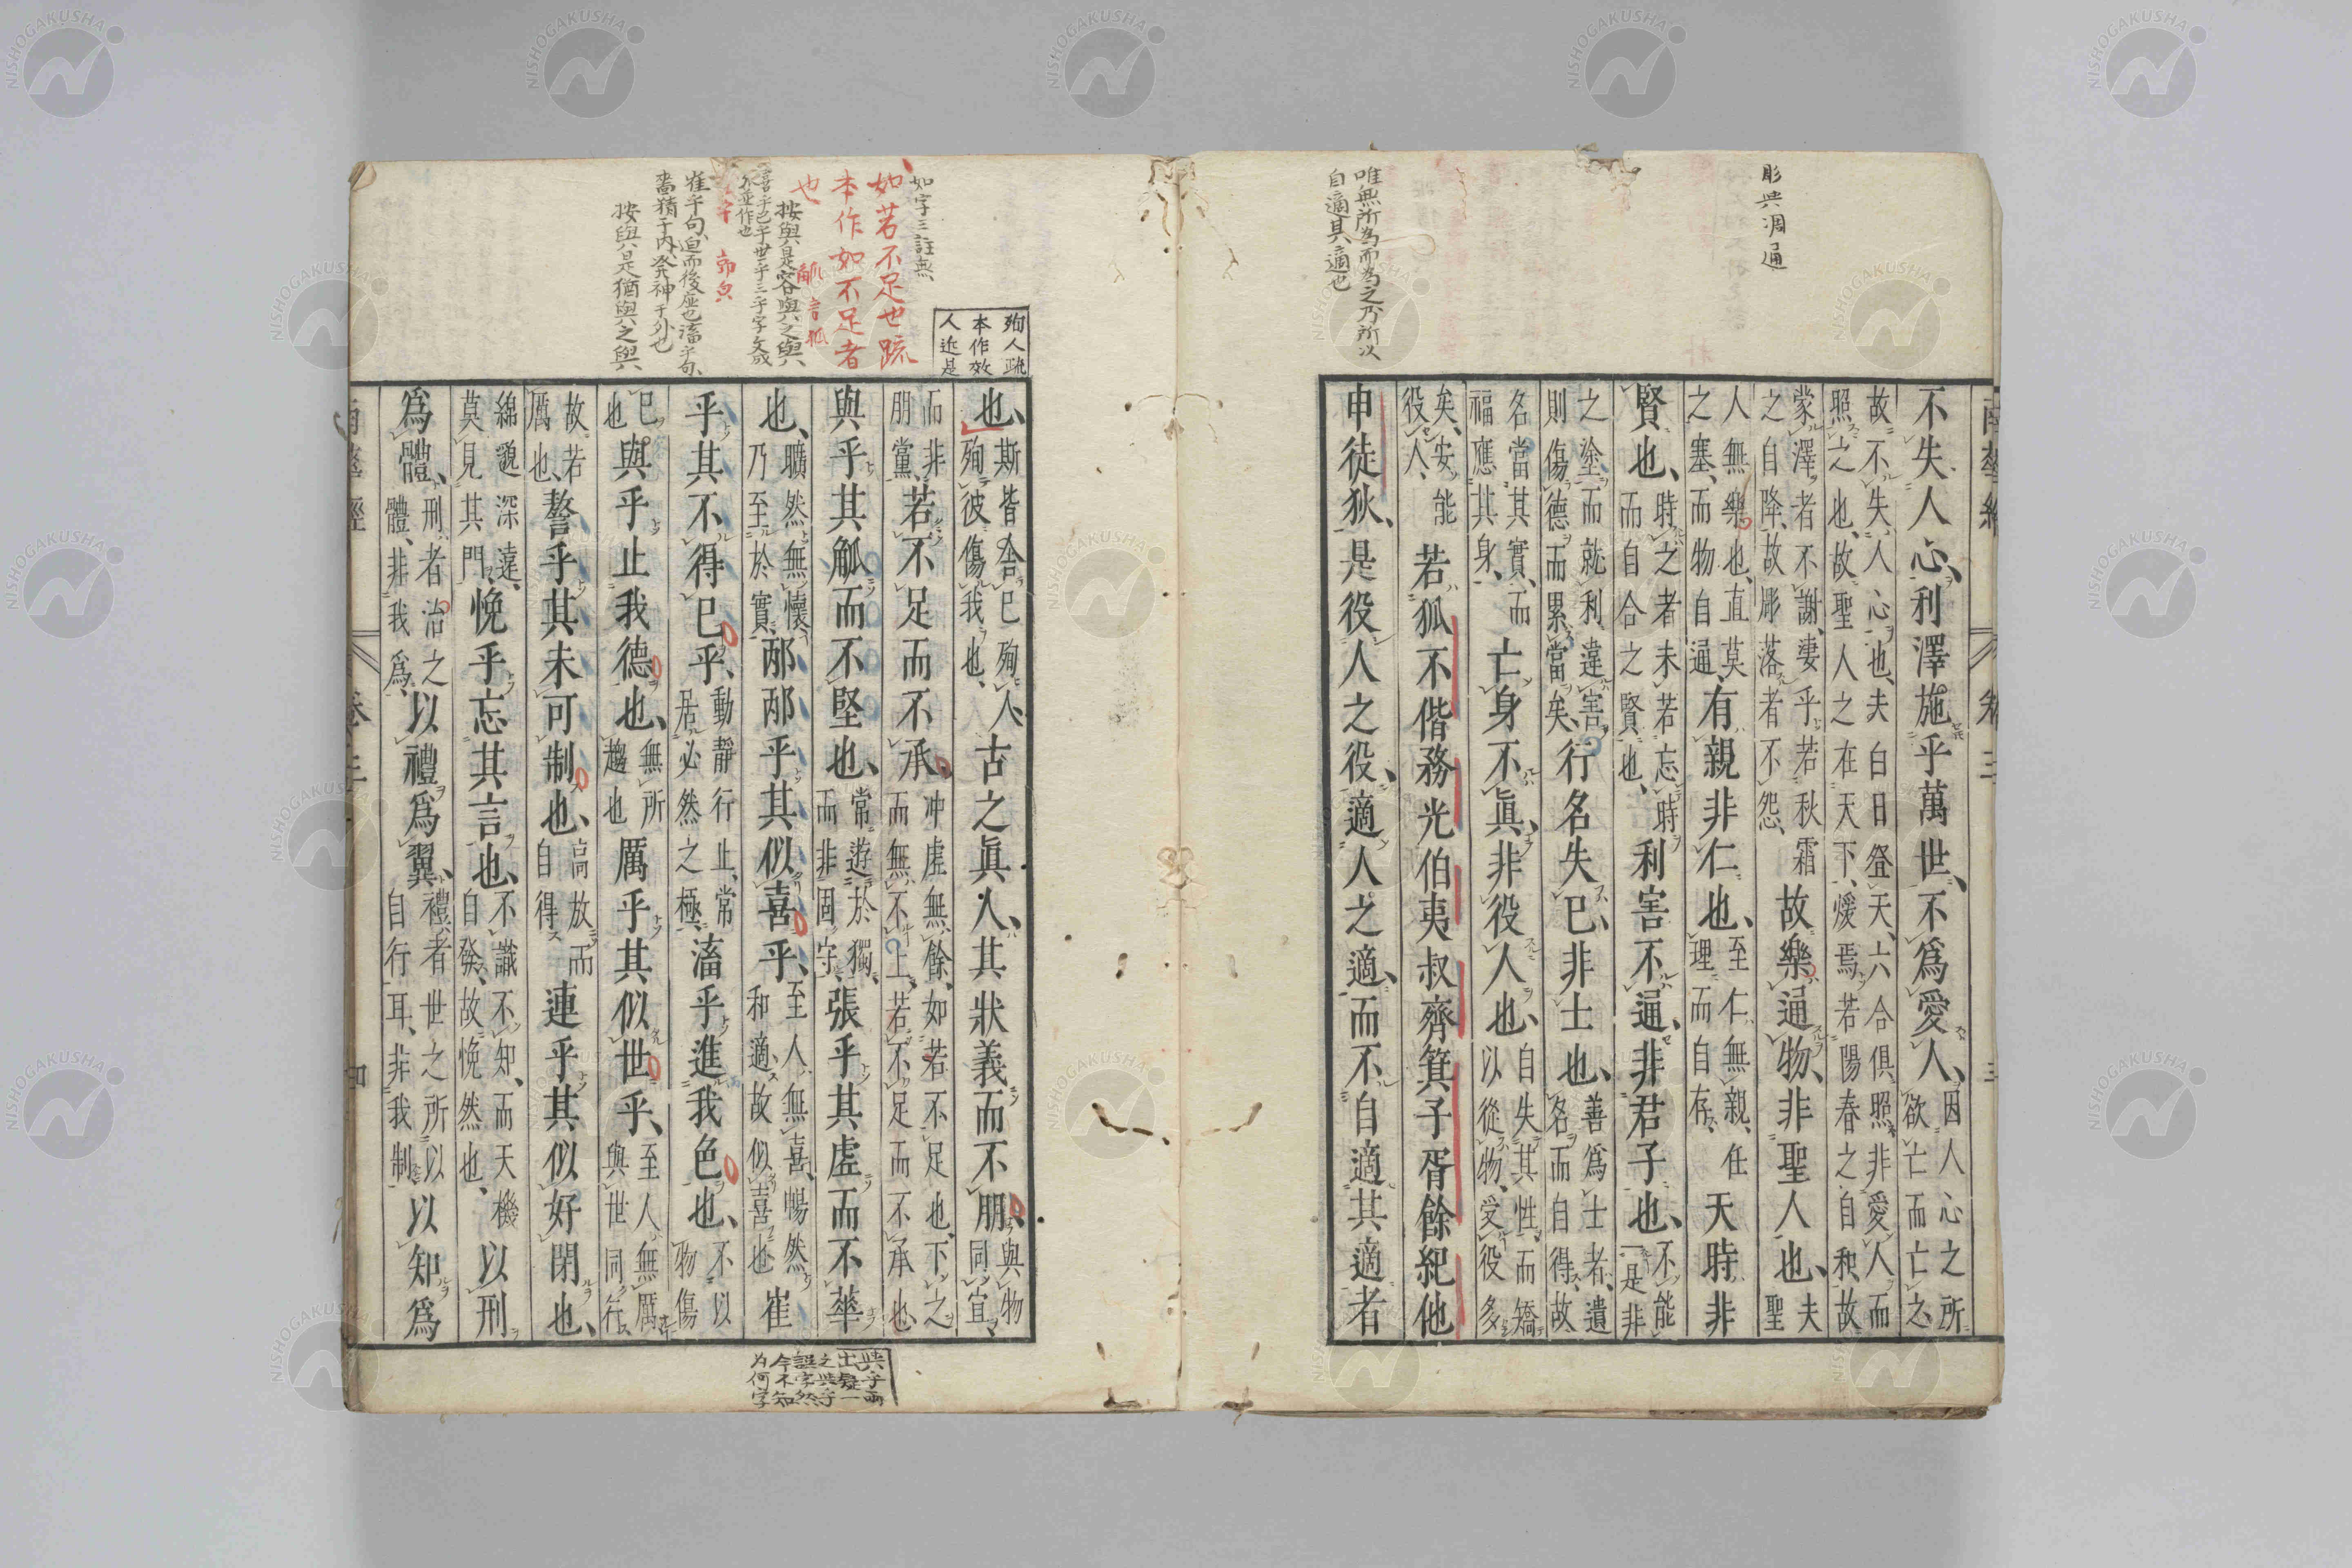 彫與凋通
唯無所為而為之乃所以
自適其適也
不失人心、利澤施乎萬世、不爲愛人、因人心之所
欲亡而亡之、
故不失人心也、夫白日登天、六合俱照、非愛人而
照之也、故聖人之在天下、煖焉若陽春之自和、故
蒙澤者不謝、凄乎若秋霜
之自降、故彫落者不怨、故樂通物、非聖人也、夫
聖
人無樂也、直莫
之塞、而物自通、有親非仁也、至仁無親、任
理而自存、天時非
賢也、時之者未若忘時
而自合之賢也、利害不通、非君子也、不能
一是非
之塗而就利違害、
則傷德而累當矣、行名失己、非士也、善爲士者、遺
名而自得、故
名當其實、而
福應其身、亡身不眞、非役人也、自失其性、而矯
以從物、受役多
矣、安能
役人、若狐不偕務光伯夷叔齊箕子胥餘紀他
申徒狄、是役人之役、適人之適、而不自適其適者
殉人疏
本作效
人近是
如字三註無
如若不足也疏
本作如不足者
也
按與是容與之與
觚音孤
喜乎已乎世乎三乎字文成
亦並作也
崔乎句、迫而後應也滀乎句、
畜精于内、發神于外也
按與是猶與之與
也、斯皆舍己殉人、
殉彼傷我也、古之眞人、其狀義而不朋、與物
同宜、
而非
朋黨、若不足而不承、冲虛無餘、如若不足也、下之
而無不上、若不足而不承也、
與乎其觚而不堅也、常遊於獨、
而非固守、張乎其虛而不華
也、曠然無懷、
乃至於實、邴邴乎其似喜乎、至人無喜、暢然
和適、故似喜也、崔
乎其不得已乎、動靜行止、常
居必然之極、滀乎進我色也、不以
物傷
己
也、與乎止我德也、無所
趨也、厲乎其似世乎、至人無厲、
與世同行、
故若
厲也、謷乎其未可制也、高放而
自得、連乎其似好閉也、
綿邈深遠、
莫見其門、悗乎忘其言也、不識不知、而天機
自發、故悗然也、以刑
爲體、刑者治之
體、非我爲、以禮爲翼、禮者世之所以
自行耳、非我制、以知爲
與字兩
出疑一
之與字
誤字然
今不知
为何字